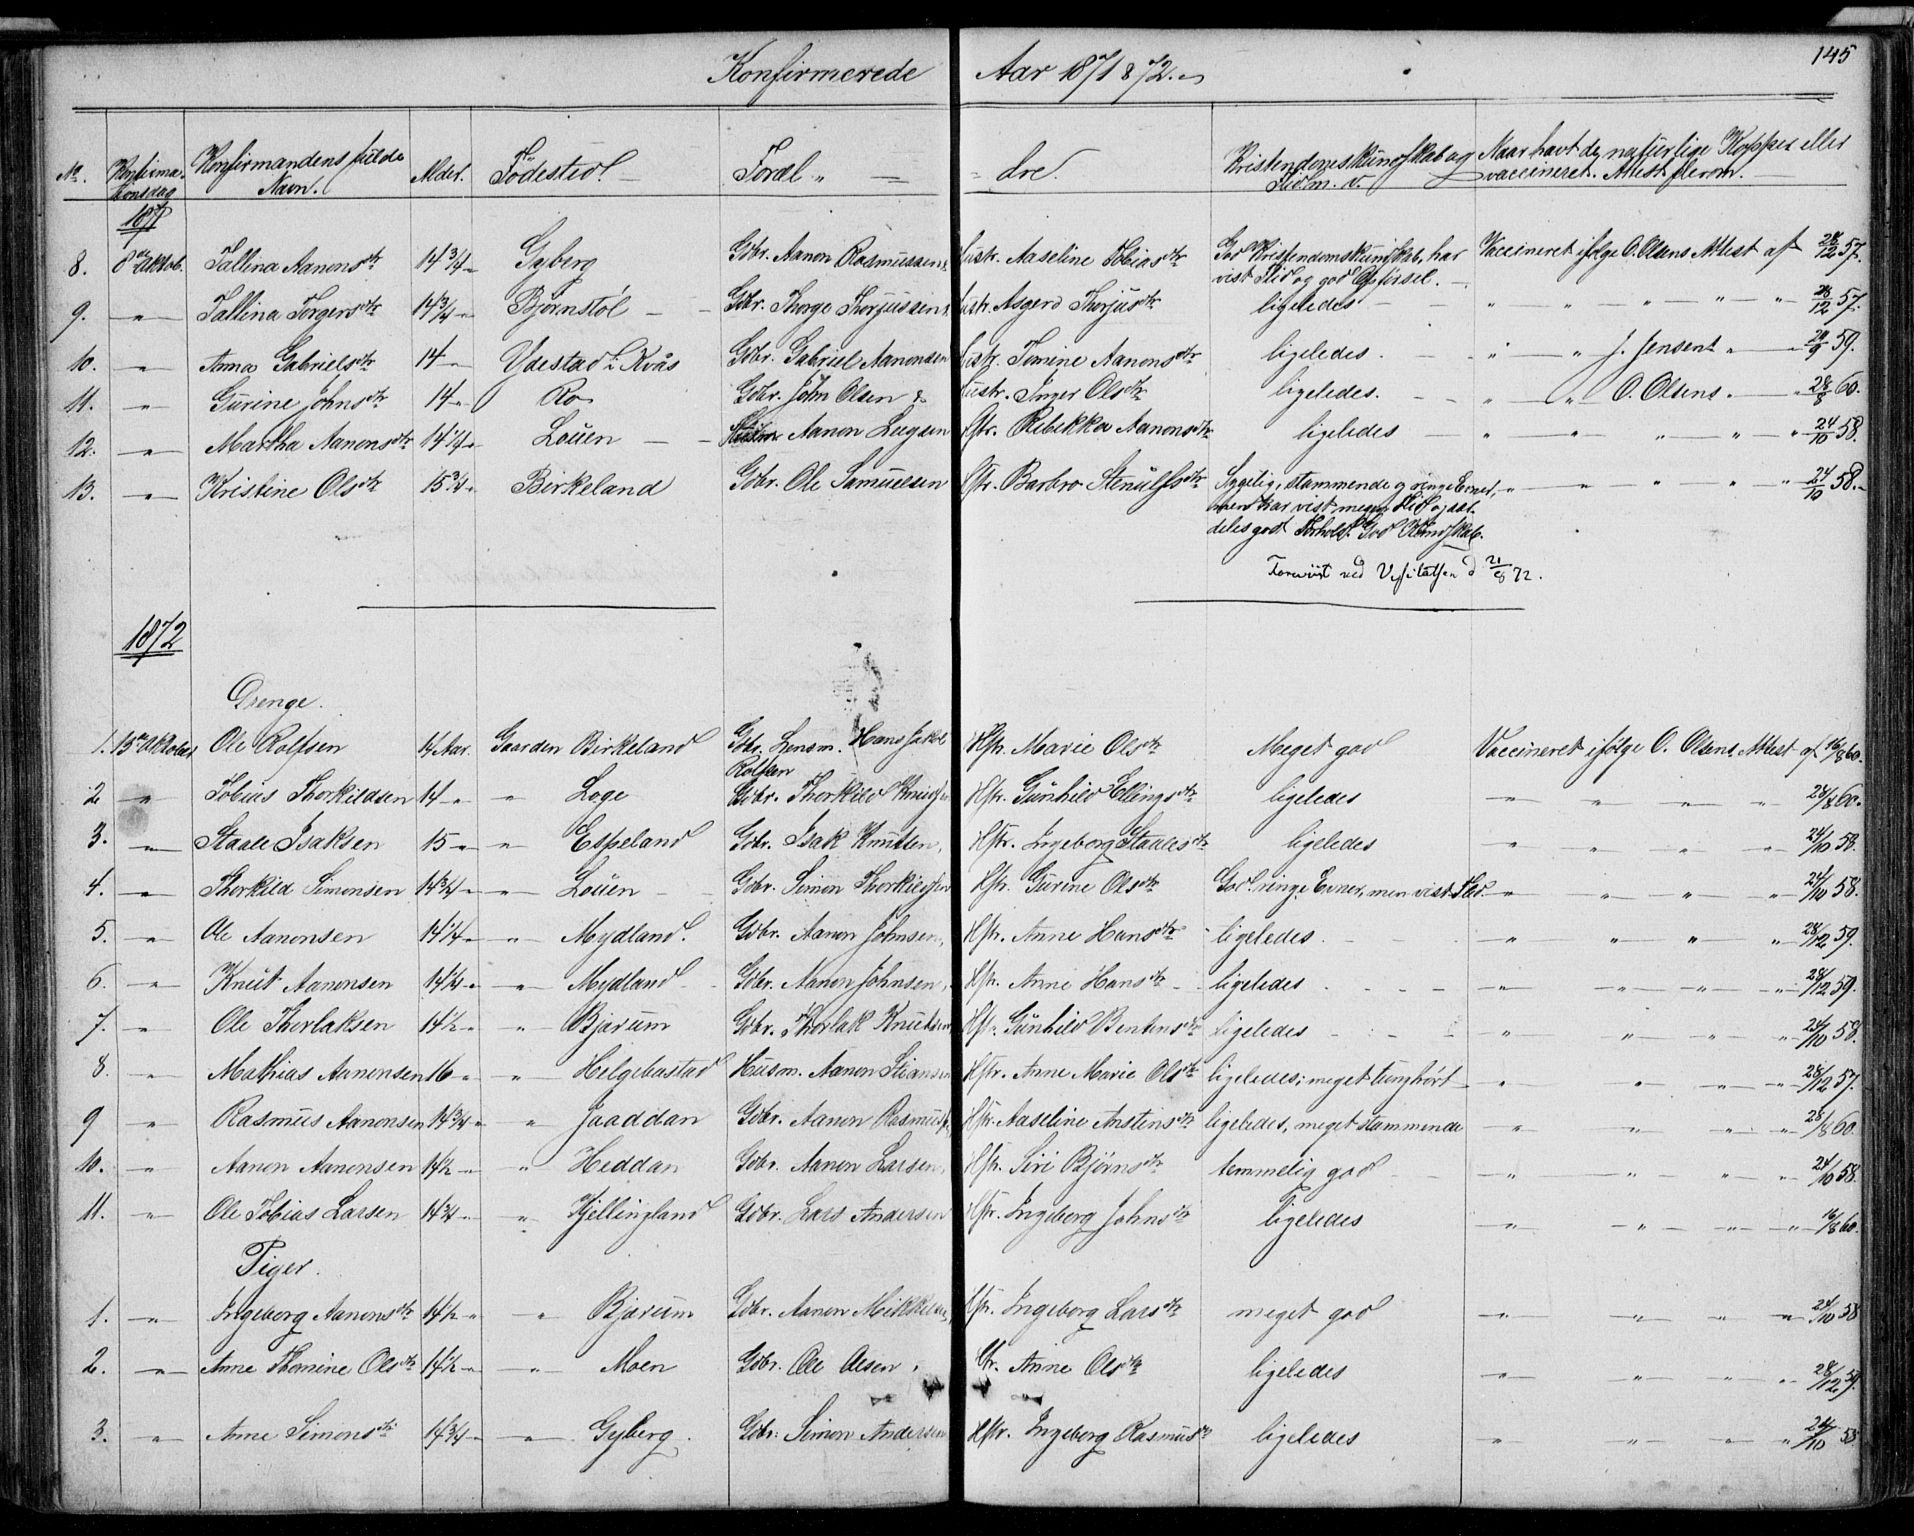 145
Konfirmerede Aar 1871 & 72.
No. Konfirma-tionsdag Konfirmandens fulde Navn. Alder. Födested Foræl- dre. Kristendomskundskab og Flid m. v. Naar havt de naturlige Kopper eller vaccineret. Attest derom.
1871
8. 8de Oktob. Tallina Aanonsdtr 14 3/4 Gyberg Gdbr. Aanon Rasmussen Hustr. Aaseline Tobiasdtr God Kristendomskundskab, har Vaccineret ifølge O. Olsens Attest af 28/12 57.
vist Flid og god Opførsel.
9. " Tallina Torgersdtr 14 3/4 Bjørnstöl Gdbr. Thorge Thorjussen Hustr. Asgerd Thorjusdtr ligeledes " " " " " 28/12 57.
10. " Anna Gabrielsdtr 14 Ydestad i Kvås Gdbr. Gabriel Aanonsen Hustr. Tomine Aanonsdtr ligeledes. " " J. Jensens " 20/9 59.
11. " Gurine Johnsdtr 14 Ro Gdbr. John Olsen & Hustr. Inger Olsdtr ligeledes. " " O. Olsens " 28/8 60.
12. " Martha Aanonsdtr 14 1/4 Louen Aanon Lugsen Hstr. Rebekka Aanonsdtr ligeledes " " " " " 24/10 58.
13. " Kristine Olsdtr 15 3/4 Birkeland Gdbr. Ole Samuelsen Hstr. Barbro Stenulfsdtr Sygelig, stammende og ringe Evner, " " " " " 24/10 58.
men har vist megen Flid og sær-
deles godt Forhold. God Kundskab.
Foreviist ved Visitatsen d 21/8 72.
1872
Drenge.
1. 13de Oktober Ole Rolfsen 14 Aar. Gaarden Birkeland Gdbr. Lensm. Hans Jakob Hstr. Marie Olsdtr Meget god Vaccineret ifølge O. Olsens Attest af 16/8 60.
Rolfsen
2 " Tobias Thorkildsen 14 " " Loge Gdbr. Thorkild Knudsen Hstr. Gunhild Ellingsdtr ligeledes " " " " 28/8 60.
3. " Staale Isaksen 15 " " Espeland Gdbr. Isak Knutsen, Hstr. Ingeborg Staalesdtr ligeledes " " " " 24/10 58.
4. " Thorkild Simonsen 14 3/4 " " Louen Gdbr. Simon Thorkildsen Hstr. Gurine Olsdtr God. ringe Evner, men vist Flid. " " " " 24/10 58.
5. " Ole Aanonsen 14 1/4 " " Mydland. Gdbr. Aanon Johnsen, Hstr. Anne Hansdtr ligeledes. " " " " 28/12 59.
6. " Knut Aanonsen 14 1/4 " " Mydland Gdbr. Aanon Johnsen, Hstr. Anne Hansdtr ligeledes " " " " 28/12 59.
7. " Ole Thorlaksen 14 1/2 " " Bjærum Gdbr. Thorlak Knutsen Hstr. Gunhild Bentensdtr ligeledes " " " " 24/10 58.
8. " Mathias Aanonsen 16 " " Helgebostad Husm. Aanon Stiansen Hstr. Anne Marie Olsdtr ligeledes; meget tunghört " " " " 28/12 57.
9 " Rasmus Aanonsen 14 3/4 " " Jaaddan Gdbr. Aanon Rasmuss. Hstr. Aaseline Anstensdtr ligeledes, meget stammende " " " " 28/8 60.
10. " Aanon Aanonsen 14 1/2 " " Heddan Gdbr. Aanon Larsen, Hstr. Siri Bjørnsdtr temmelig god " " " " 24/10 58.
11. " Ole Tobias Larsen 14 3/4 " " Kjellingland Gdbr. Lars Andersen Hstr. Ingeborg Johnsdtr ligeledes " " " " 16/8 60.
Piger.
1. " Ingeborg Aanonsdtr 14 1/2 " " Bjærum Gdbr. Aanon Mikkelsen, Hstr. Ingeborg Larsdtr meget god " " " " 24/10 58
2. " Anne Thomine Olsdtr 14 1/2 " " Moen Gdbr. Ole Olsen, Hstr. Anne Olsdtr ligeledes " " " " 28/12 59.
3. " Anne Simonsdtr 14 3/4 " " Gyberg. Gdbr. Simon Andersen Hstr. Ingeborg Rasmusdtr ligeledes " " " " 24/10 58